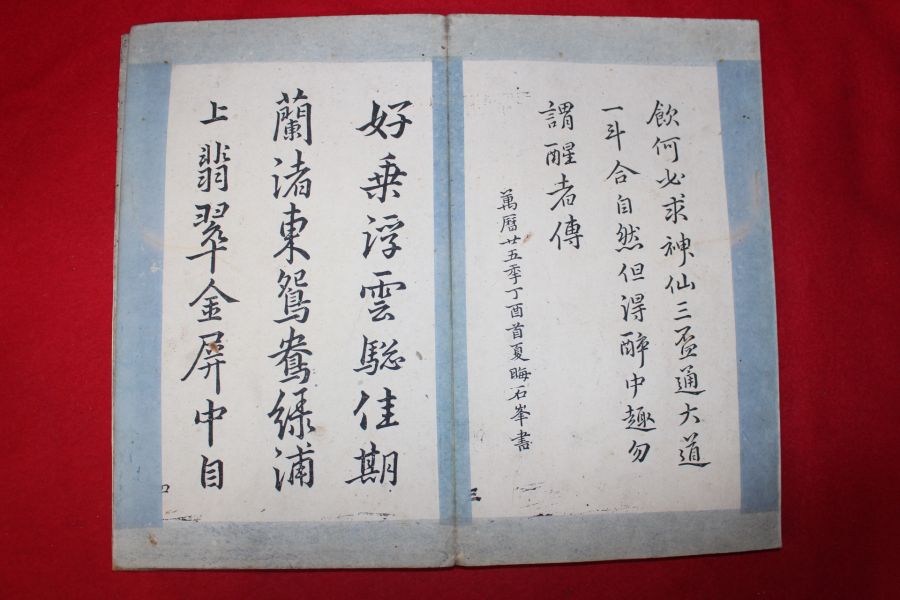 飲何必求神仙三盃通大道
一斗合自然但得醉中趣勿
謂醒者傳
萬曆廿五季丁酉首夏晦石峯書
三
好乗浮雲驄佳期
蘭渚東鴛鴦綠浦
上翡翠金屏中自
口